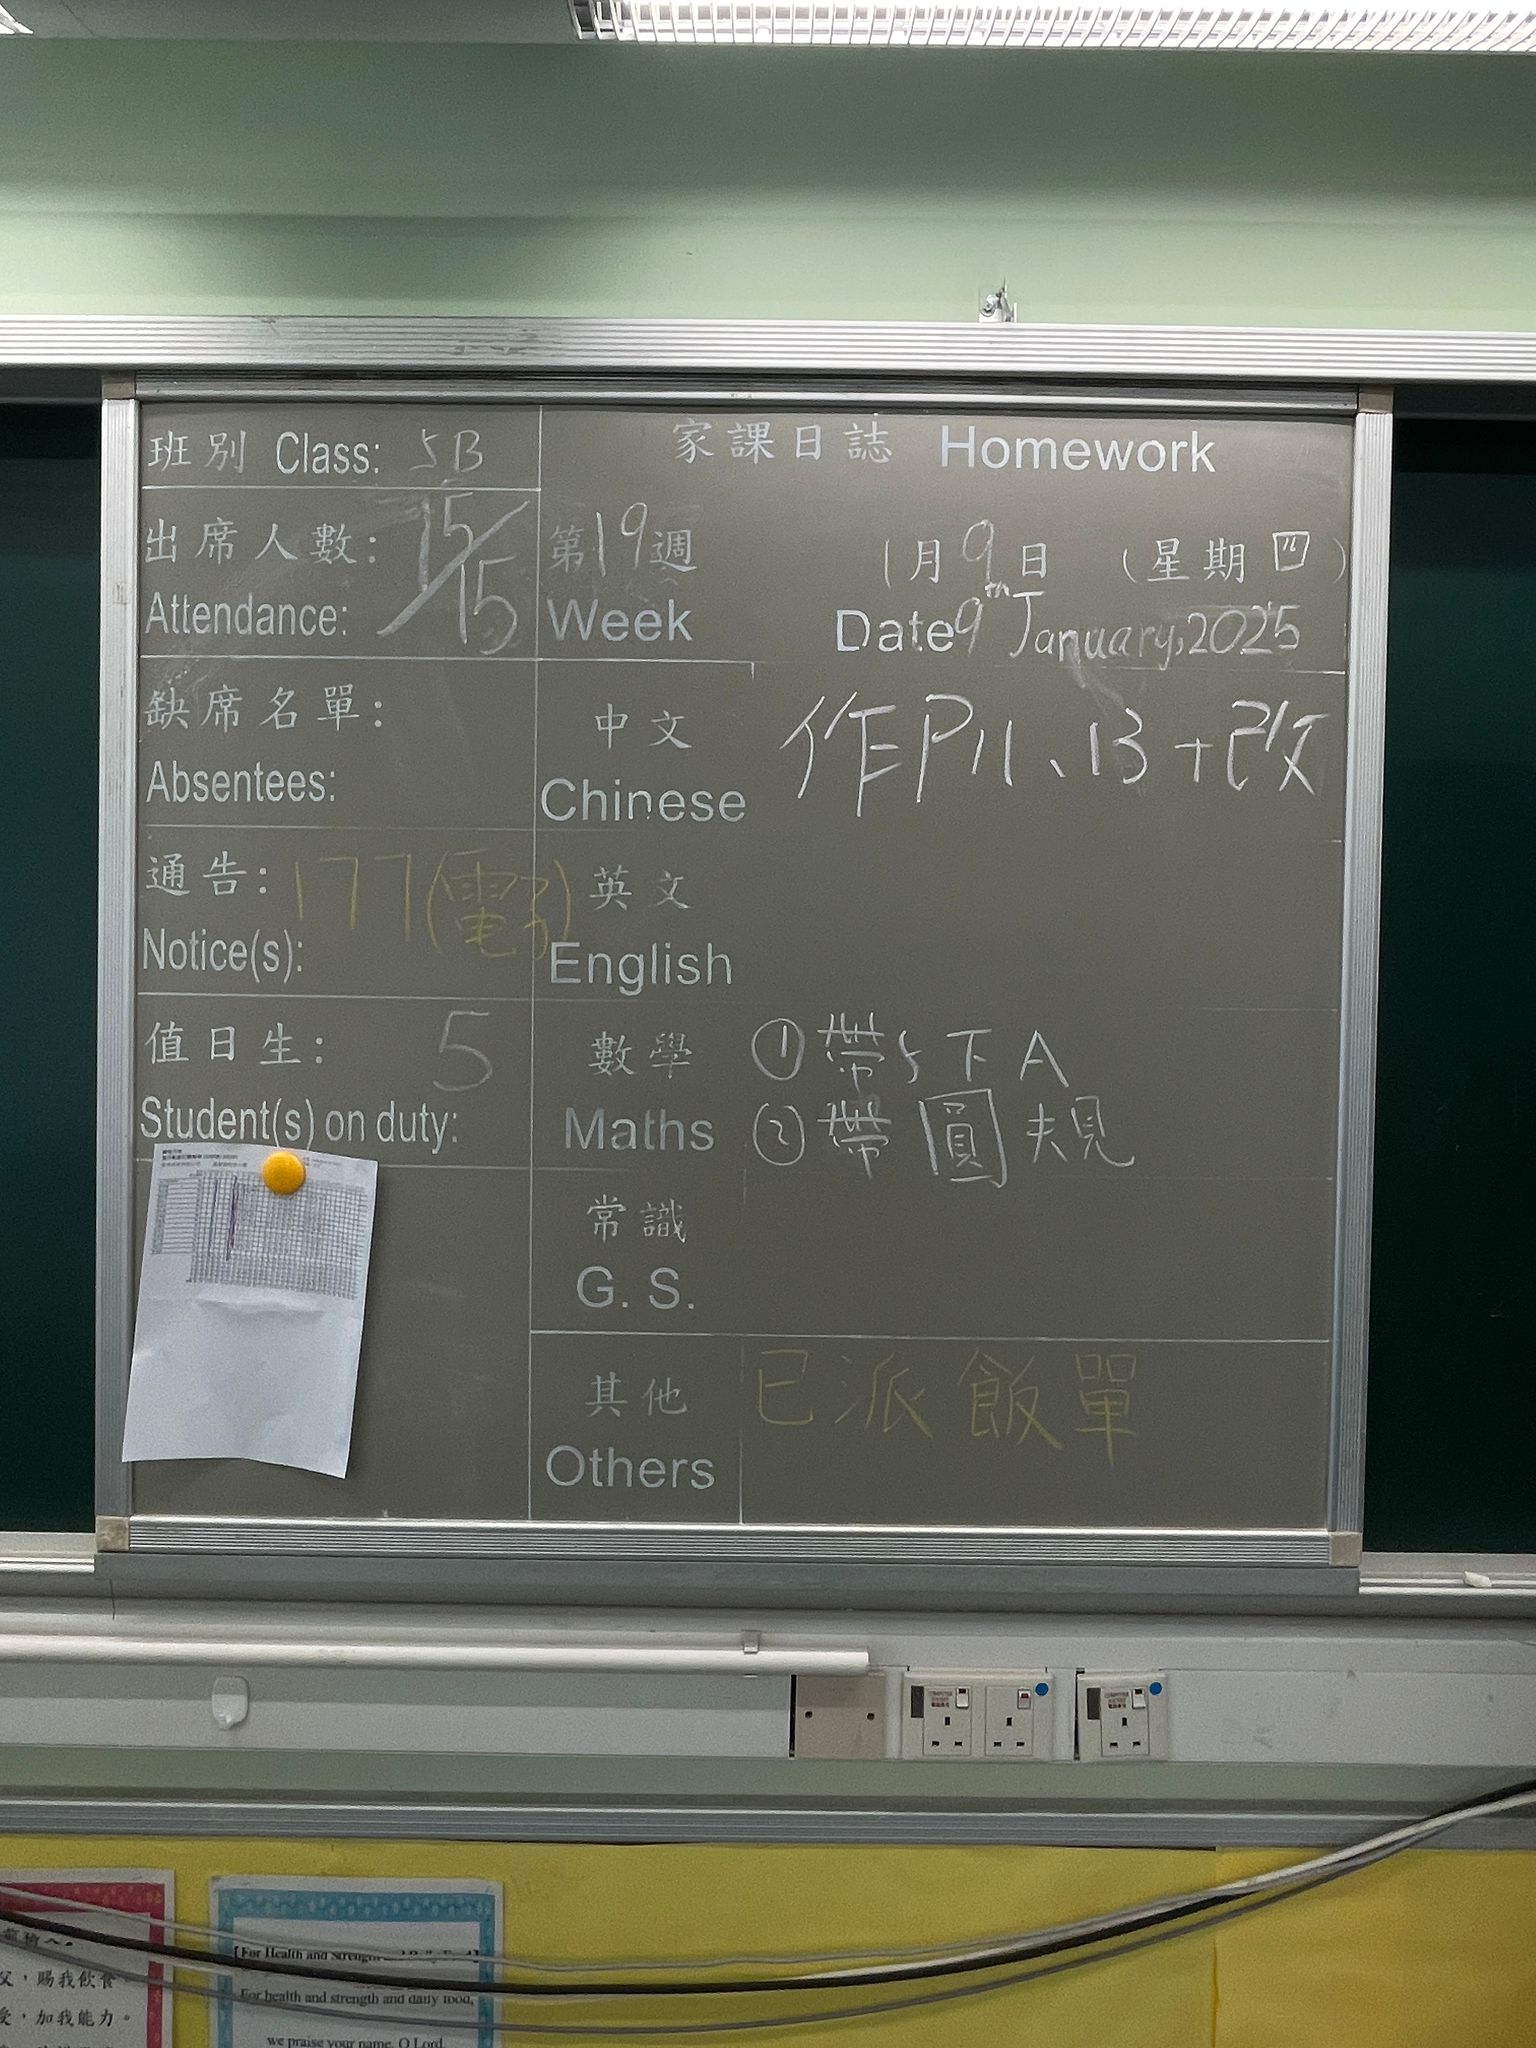 班別 Class: 5B
家課日誌 Homework
出席人數: 15/15
Attendance:
第19週
Week
1月9日 (星期四)
Date 9th January, 2025
缺席名單:
Absentees:
中文
Chinese
作P11、13+改
通告: 177(電子)
Notice(s):
英文
English
值日生: 5
Student(s) on duty:
數學
Maths
①帶5下A
②帶圓規
常識
G. S.
其他
Others
已派飯單
父，賜我飲食。
，加我能力。
For health and strength and daily food,
we praise your name, O Lord.